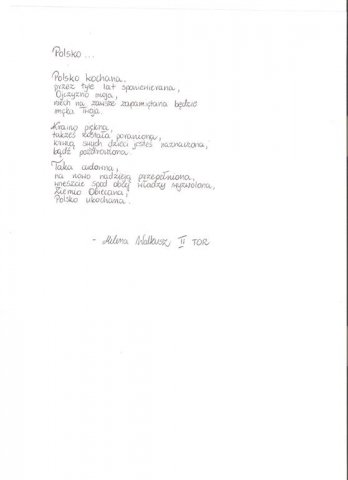 Polsko ...
Polsko kochana.
przez tyle lat sponiewierana,
Ojczyzno moja,
niech na zawsze zapamiętana będzie
męka Twoja.
Kraino piękna,
tyleż została poraniona,
krwią swych dzieci jesteś naznaczona,
bądź pozdrowiona.
Taka cudowna,
na nowo nadzieją przepełniona,
wreszcie spod obcej władzy wyzwolona,
Ziemio Obiecana,
Polsko ukochana.
- Helena Walkusz, II TOR